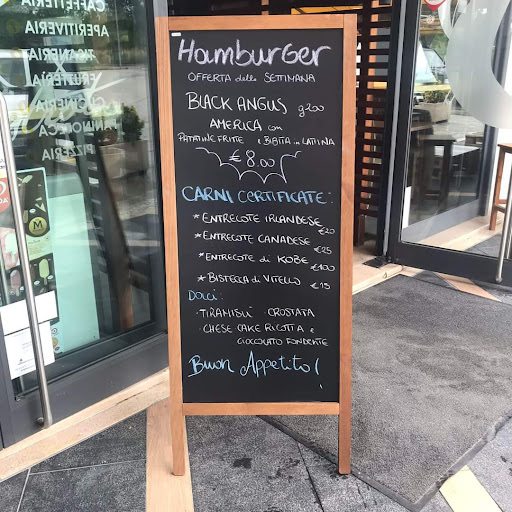 CAFFETTERIA
APERITIVERIA
FRUTTERIA
PANINOTECA
PIZZERIA
HamburGer
OFFERTA della SETTIMANA
BLACK ANGUS g200
AMERICA con
PATATINE FRITTE e BIBITA in LATTINA
€ 8.00
CARNI CERTIFICATE:
* ENTRECOTE IRLANDESE €20
* ENTRECOTE CANADESE €25
* ENTRECOTE di KOBE €100
* BISTECCA di VITELLO €15
DOLCI:
· TIRAMISÙ · CROSTATA
· CHESE CAKE RICOTTA e
CIOCCOLATO FONDENTE
Buon Appetito!